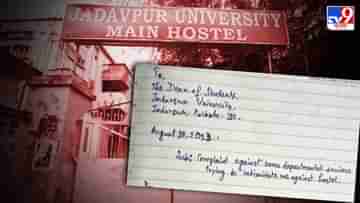 JADAVPUR UNIVERSITY
MAIN HOSTEL
TV9
To,
The Dean of Students
Jadavpur University,
Jadavpur, Kolkata-
August
Sub: Complaint against some departmental seniors
trying to intimidate me against hostel.